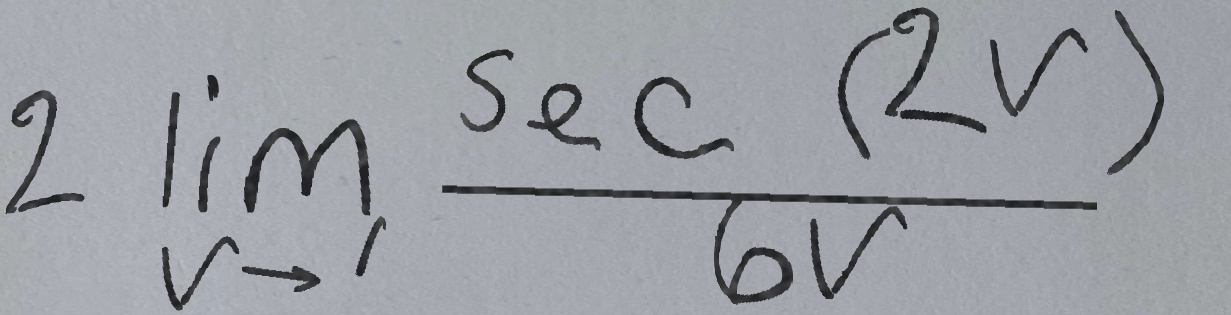 2 lim_{v→1} \frac{sec (2v)}{6v}